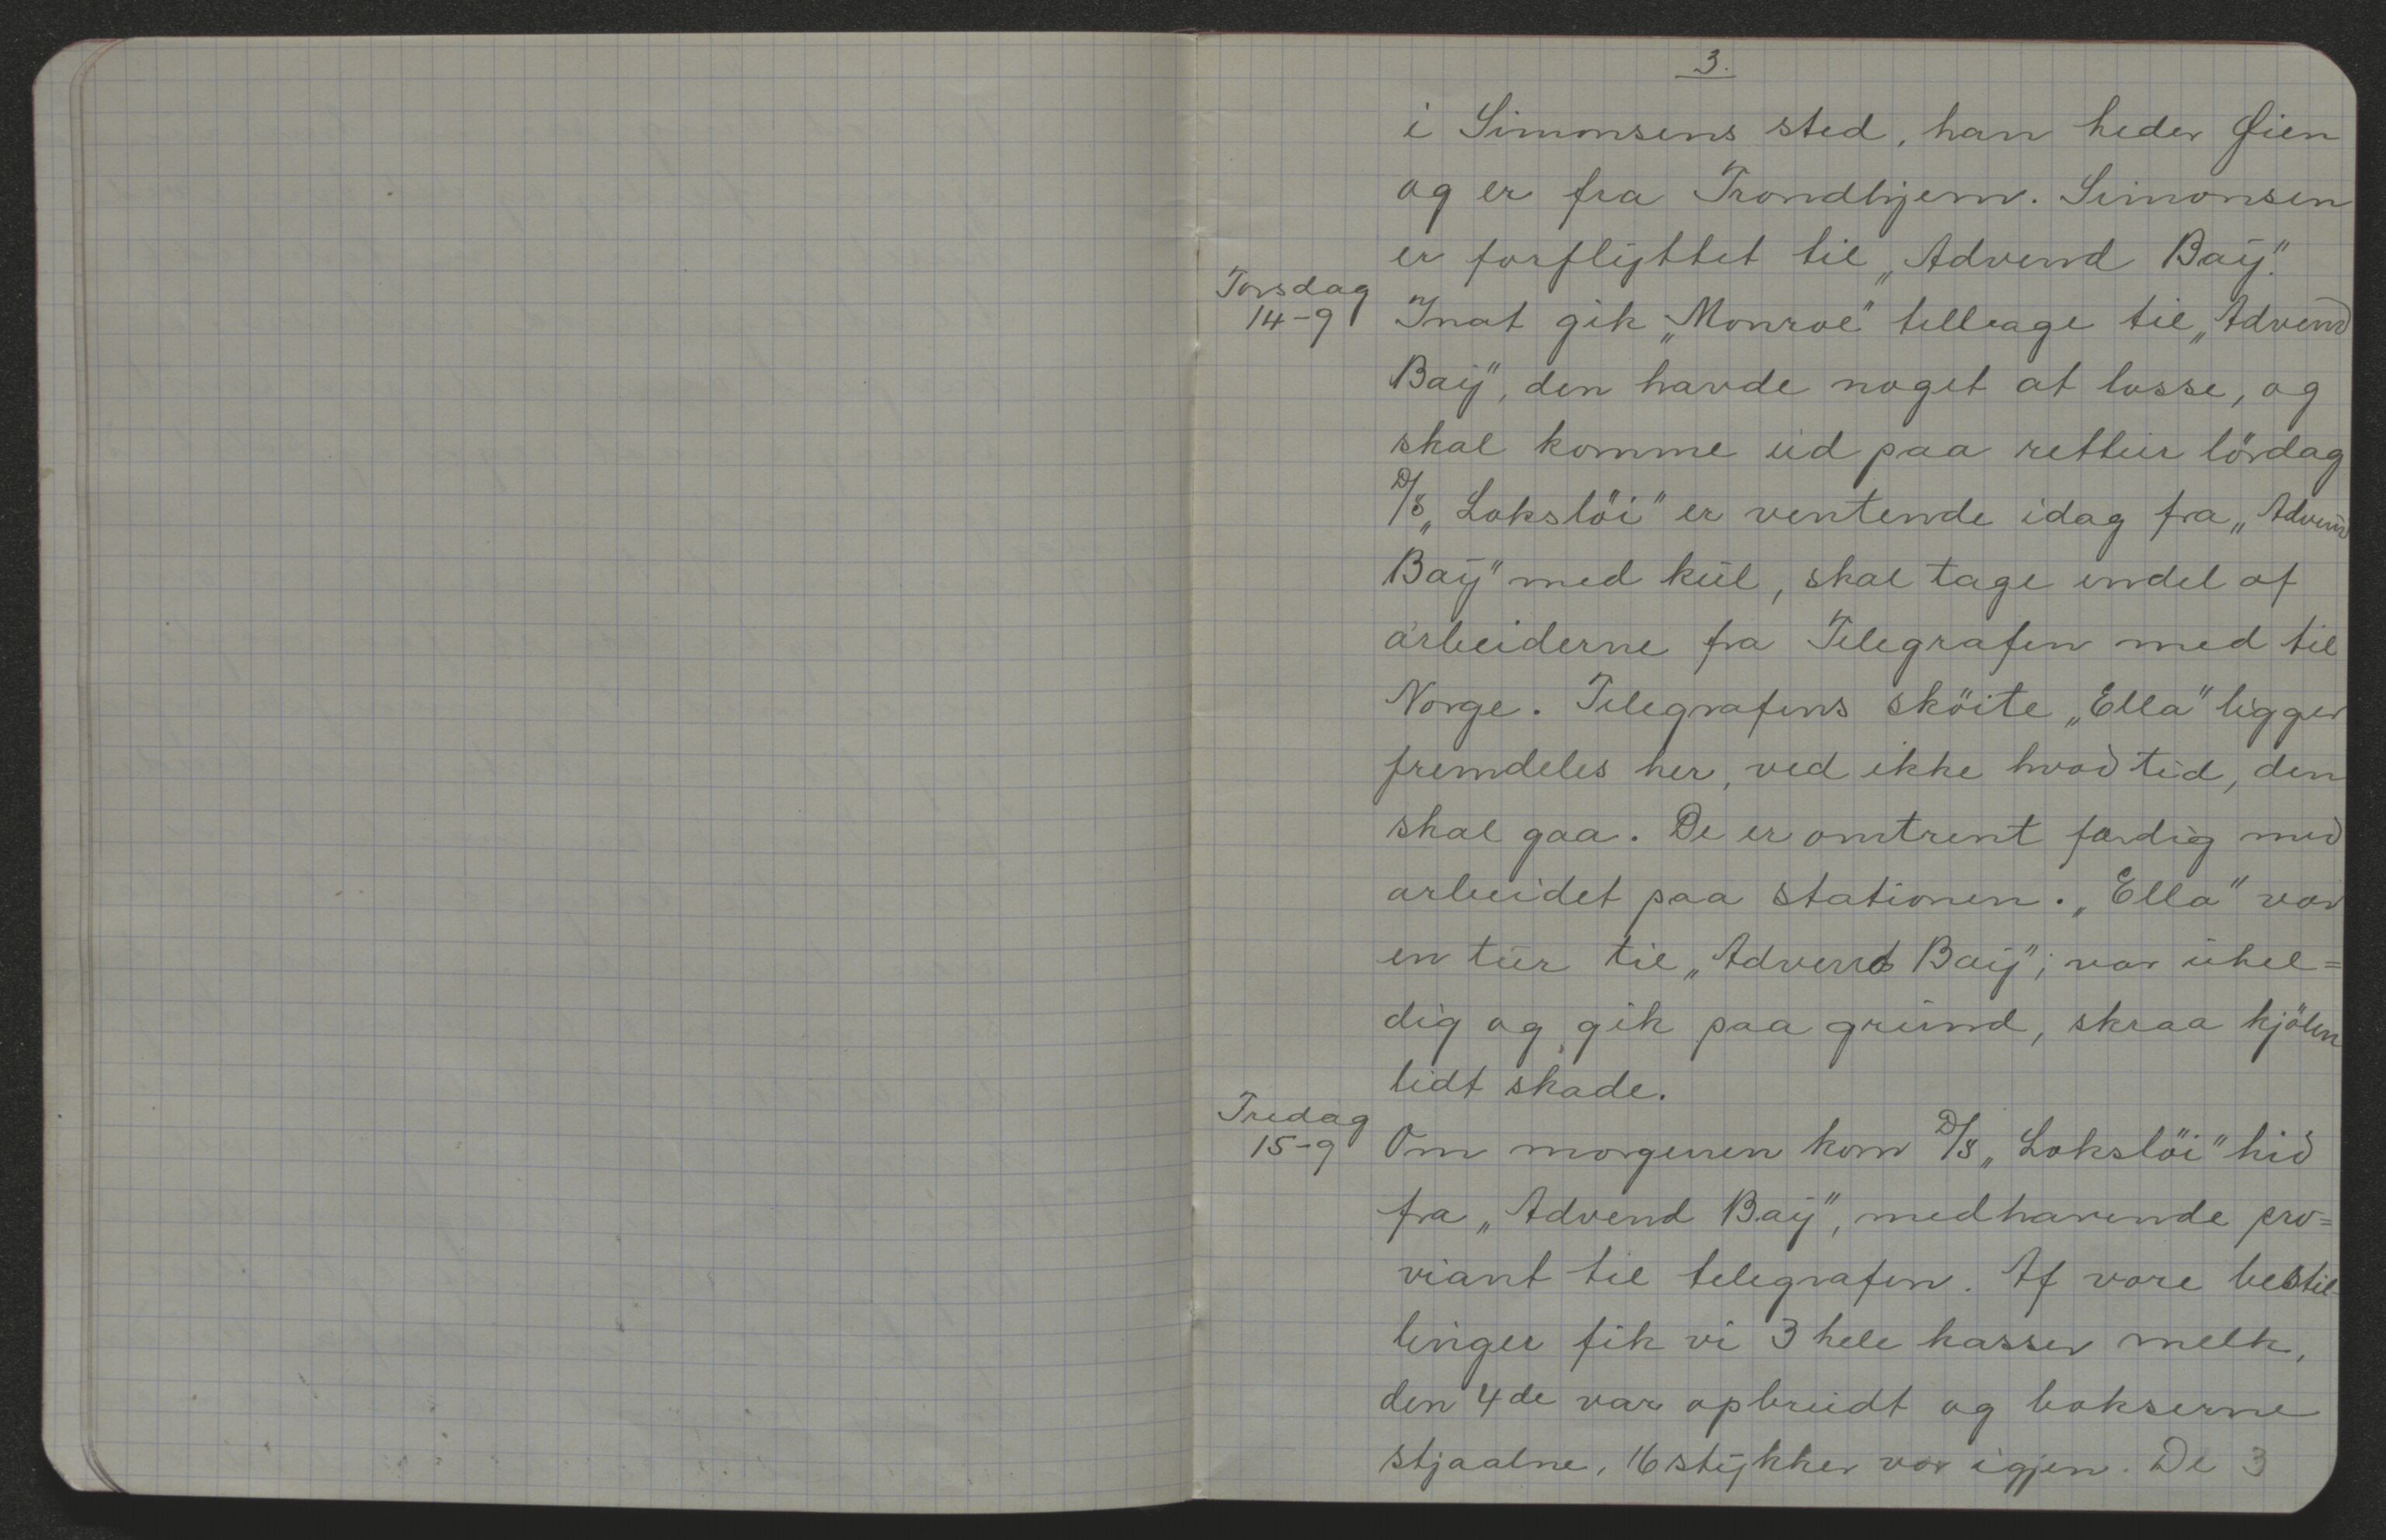 3.
i Simonsens sted, han heder Øien
og er fra Trondhjem. Simonsen
er forflyttet til „Advend Bay".
Torsdag
14-9
Inat gik „Monroe" tilbage til „Advend
Bay", den havde noget at losse, og
skal komme ud paa rettur lördag
D/S „Lokslöi" er ventende idag fra „Advend
Bay" med kul, skal tage endel af
arbeiderne fra Telegrafen med til
Norge. Telegrafens sköite „Ella" ligger
fremdeles her, ved ikke hvad tid, den
skal gaa. De er omtrent færdig med
arbeidet paa stationen. „Ella" var
en tur til „Advend Bay"; var uhel=
dig og gik paa grund, skraa kjölen
lidt skade.
Fredag
15-9
Om morgenen kom D/S „Lokslöi" hid
fra „Advend Bay", medhavende pro=
viant til telegrafen. Af vore bestil-
linger fik vi 3 hele kasser melk,
den 4de var opbrudt og bokserne
stjaalne, 16 stykker var igjen. De 3